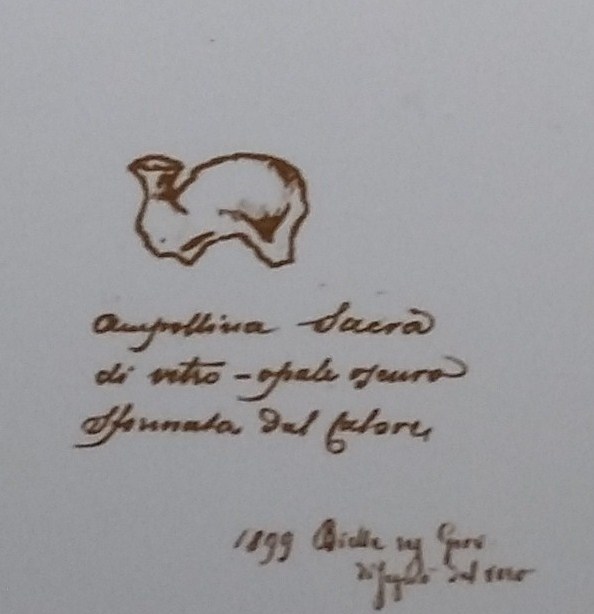 Ampollina Sacra
di vetro - opale oscuro
Sformata dal Calore
1899 Biella
disegno dal vero